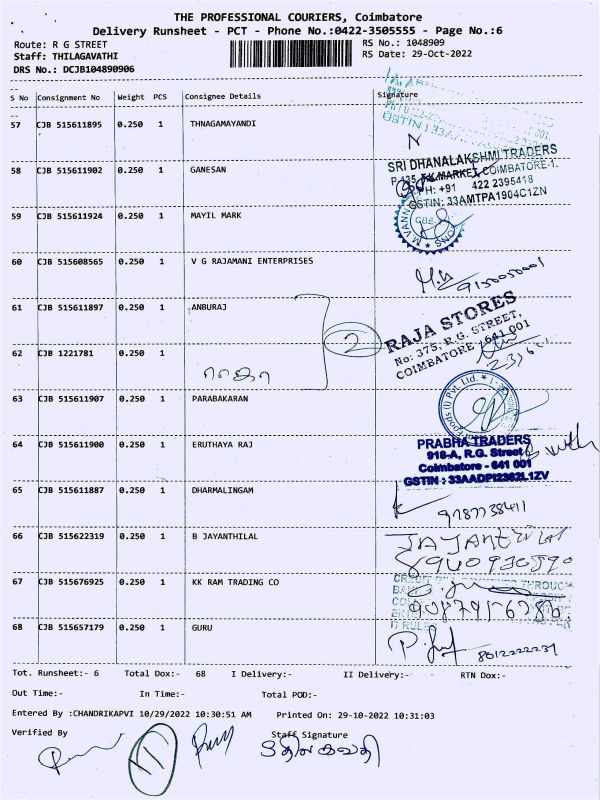 THE PROFESSIONAL COURIERS, Coimbatore
Delivery Runsheet - PCT - Phone No.:0422-3505555 - Page No.:6
Route: R G STREET
RS No.: 1048909
Staff: THILAGAVATHI
RS Date: 29-Oct-2022
DRS No.: DCJB104890906
S No Consignment No Weight PCS Consignee Details Signature
57 CJB 515611895 0.250 1 THNAGAMAYANDI
58 CJB 515611902 0.250 1 GANESAN
SRI DHANALAKSHMI TRADERS
P-135, T.K.MARKET, COIMBATORE-1.
PH: +91 422 2395418
GSTIN: 33AMTPA1904C1ZN
59 CJB 515611924 0.250 1 MAYIL MARK
CBE
60 CJB 515608565 0.250 1 V G RAJAMANI ENTERPRISES
9150050001
61 CJB 515611897 0.250 1 ANBURAJ
2
RAJA STORES
No: 375, R.G. STREET,
COIMBATORE - 641 001
62 CJB 1221781 0.250 1
63 CJB 515611907 0.250 1 PARABAKARAN
64 CJB 515611900 0.250 1 ERUTHAYA RAJ
PRABHA TRADERS
918-A, R.G. Street
Coimbatore - 641 001
GSTIN : 33AADPI2362L1ZV
65 CJB 515611887 0.250 1 DHARMALINGAM
9787738411
66 CJB 515622319 0.250 1 B JAYANTHILAL
8940930890
67 CJB 515676925 0.250 1 KK RAM TRADING CO
68 CJB 515657179 0.250 1 GURU
8012222231
Tot. Runsheet:- 6 Total Dox:- 68 I Delivery:- II Delivery:- RTN Dox:-
Out Time:- In Time:- Total POD:-
Entered By :CHANDRIKAPVI 10/29/2022 10:30:51 AM Printed On: 29-10-2022 10:31:03
Verified By Staff Signature